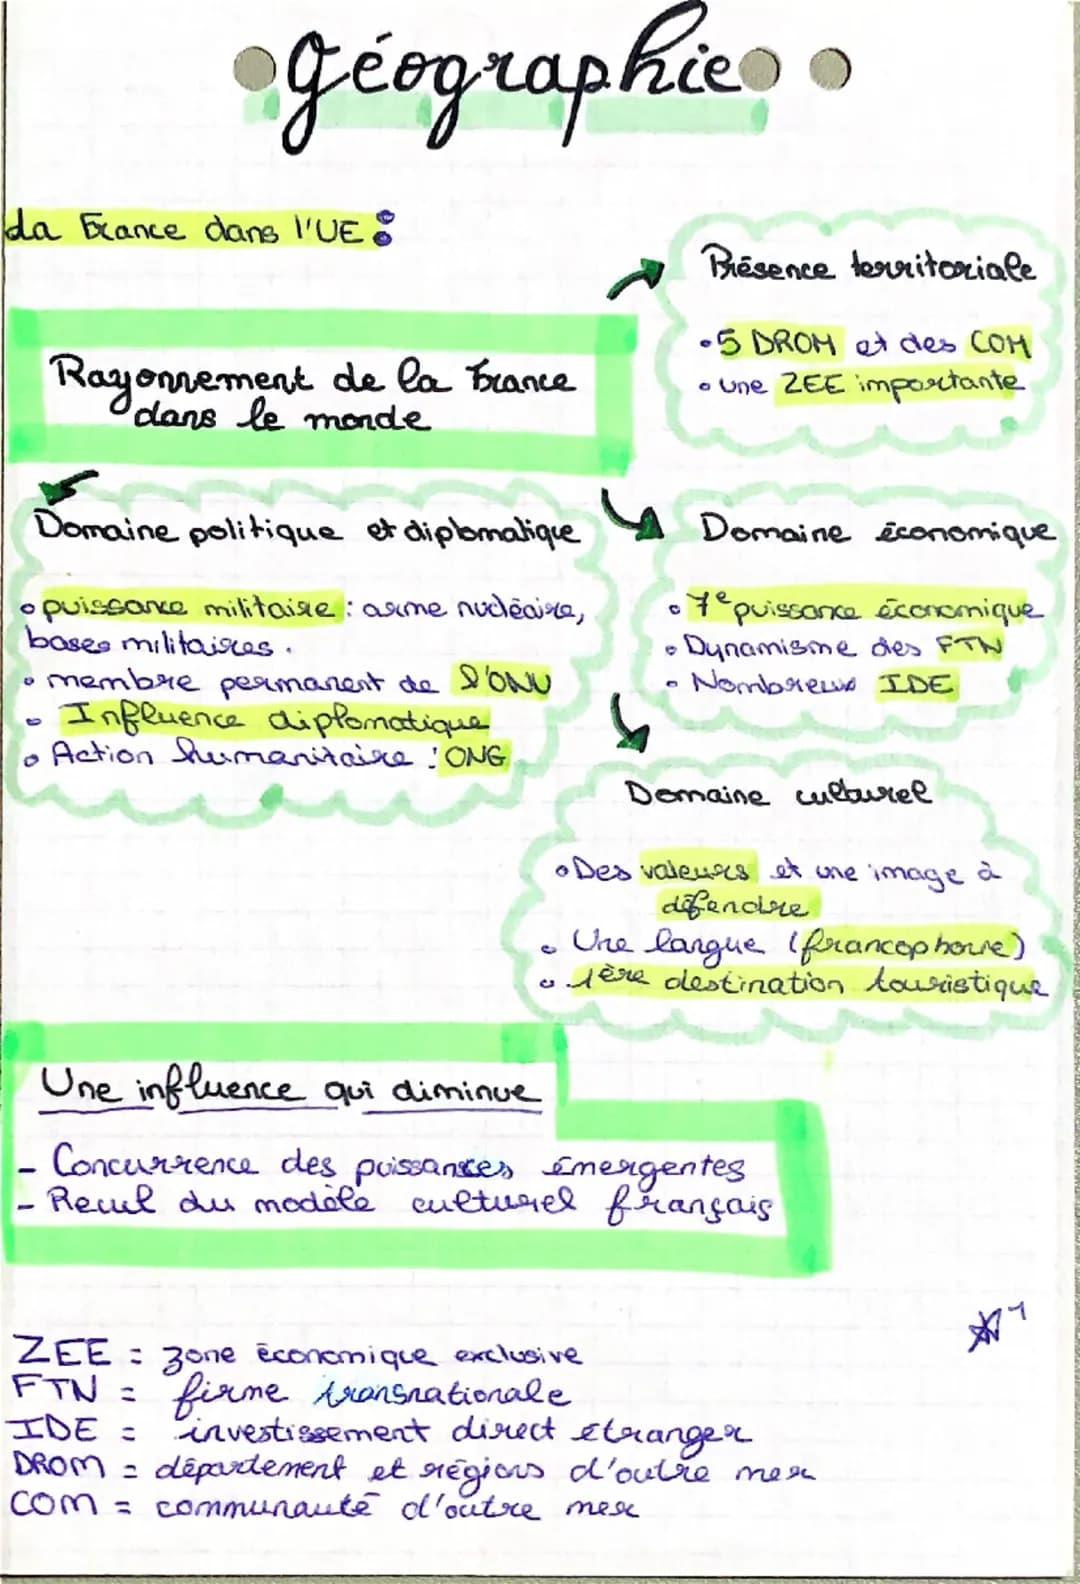 géographie
La France dans l'UE :
Rayonnement de la France
dans le monde
Présence territoriale
• 5 DROM et des COM
• une ZEE importante
Domaine politique et diplomatique
• puissance militaire : arme nucléaire,
bases militaires.
• membre permanent de l'ONU
• Influence diplomatique
• Action humanitaire : ONG
Domaine économique
• 7e puissance économique
• Dynamisme des FTN
• Nombreux IDE
Domaine culturel
• Des valeurs et une image à
défendre
• Une langue (francophonie)
• 1ère destination touristique
Une influence qui diminue
- Concurrence des puissances émergentes
- Recul du modèle culturel français
1
ZEE = zone économique exclusive
FTN = firme transnationale
IDE = investissement direct étranger
DROM = département et régions d'outre mer
COM = communauté d'outre mer